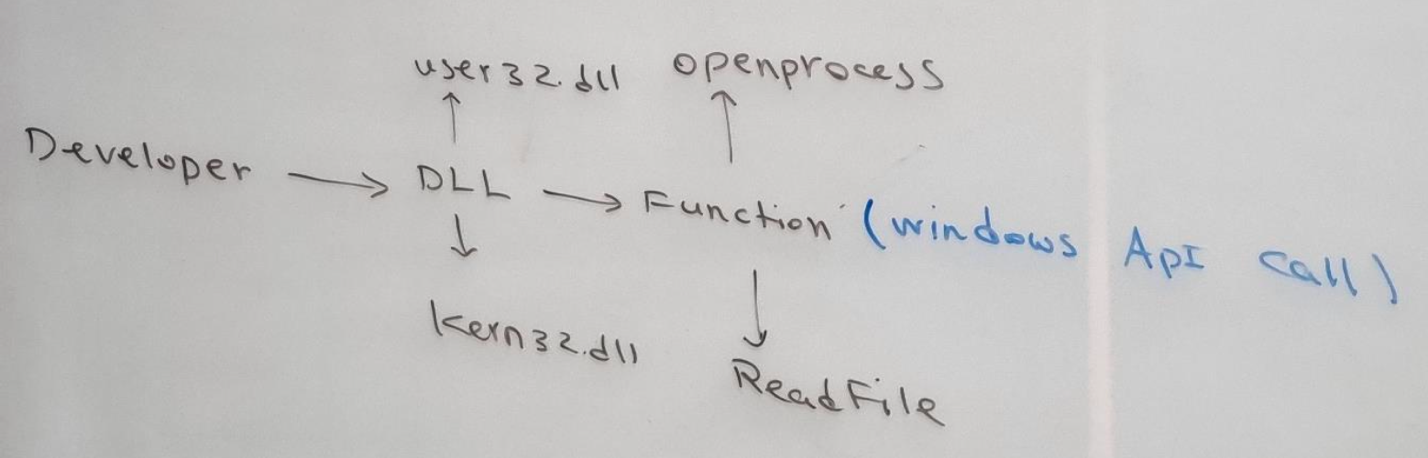 user32.dll openprocess
Developer → DLL → Function (windows ApI call)
Kern32.dll
ReadFile